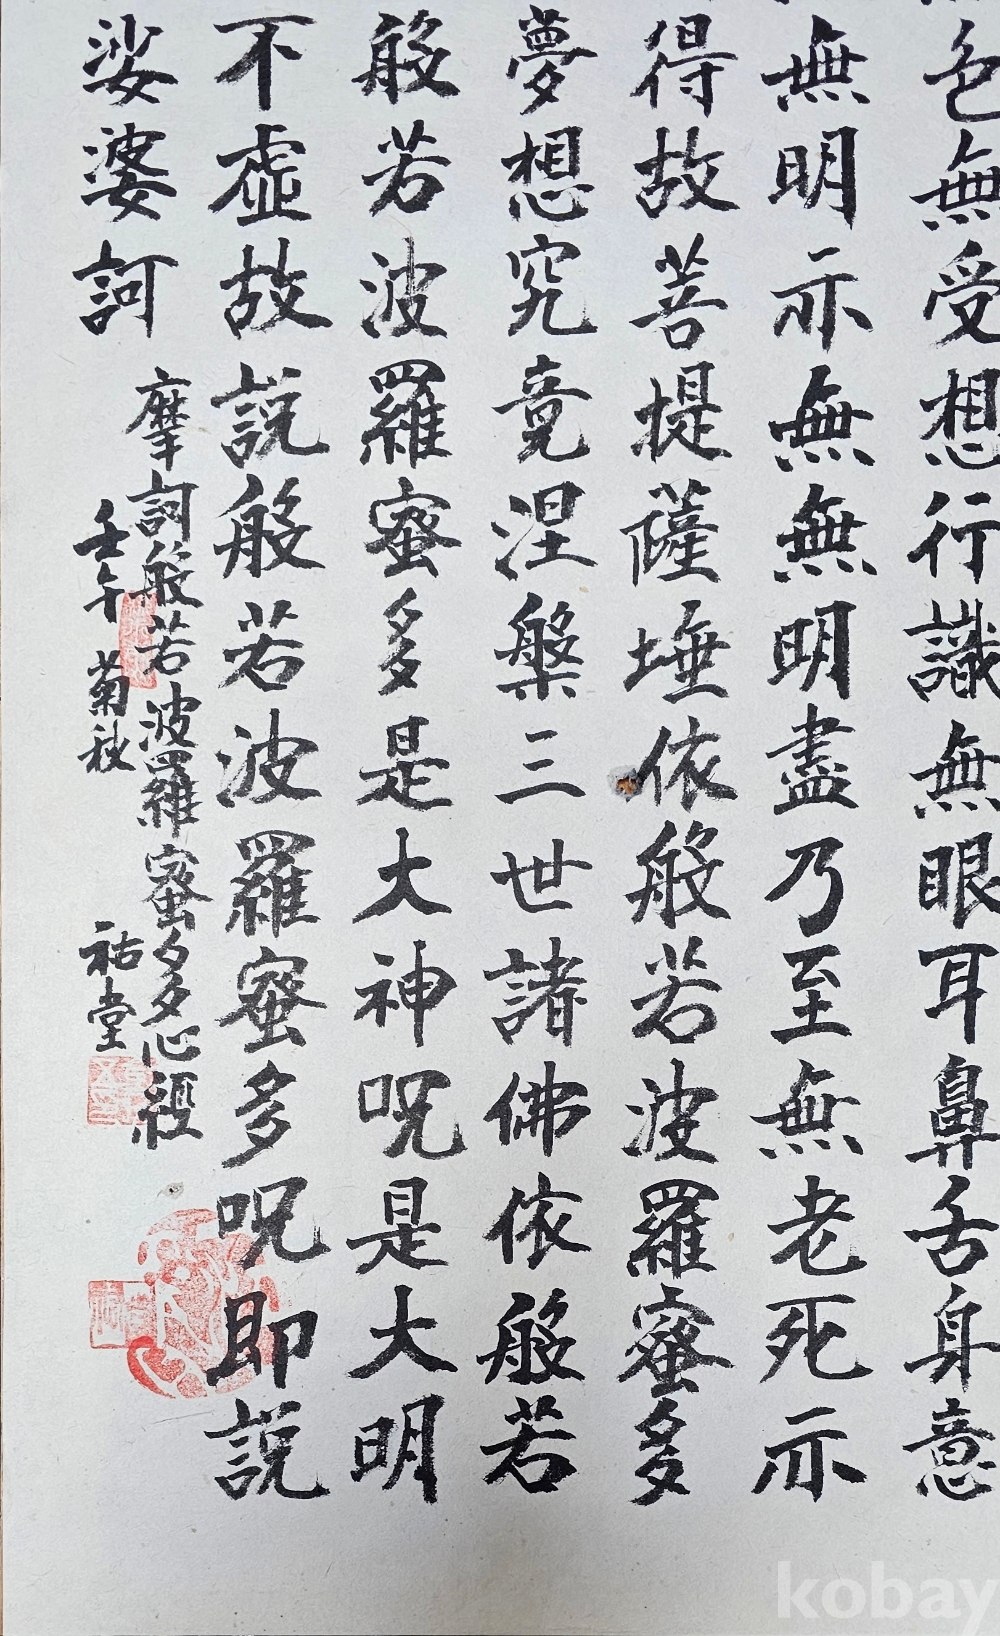 色無受想行識無眼耳鼻舌身意
無明亦無無明盡乃至無老死亦
得故菩提薩埵依般若波羅蜜多
夢想究竟涅槃三世諸佛依般若
般若波羅蜜多是大神呪是大明
不虛故說般若波羅蜜多呪即說
娑婆訶
摩訶般若波羅蜜多心経
壬午菊秋 祐堂
kobay